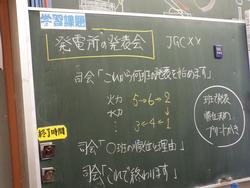 学習課題
発電所の発表会
司会「これから何班の発表を始めます」
火力 5→6→2
水力
3←4←1
終了時間
司会「○班の順位と理由」
司会「これで終わります」
班発表
順位決め
プリント